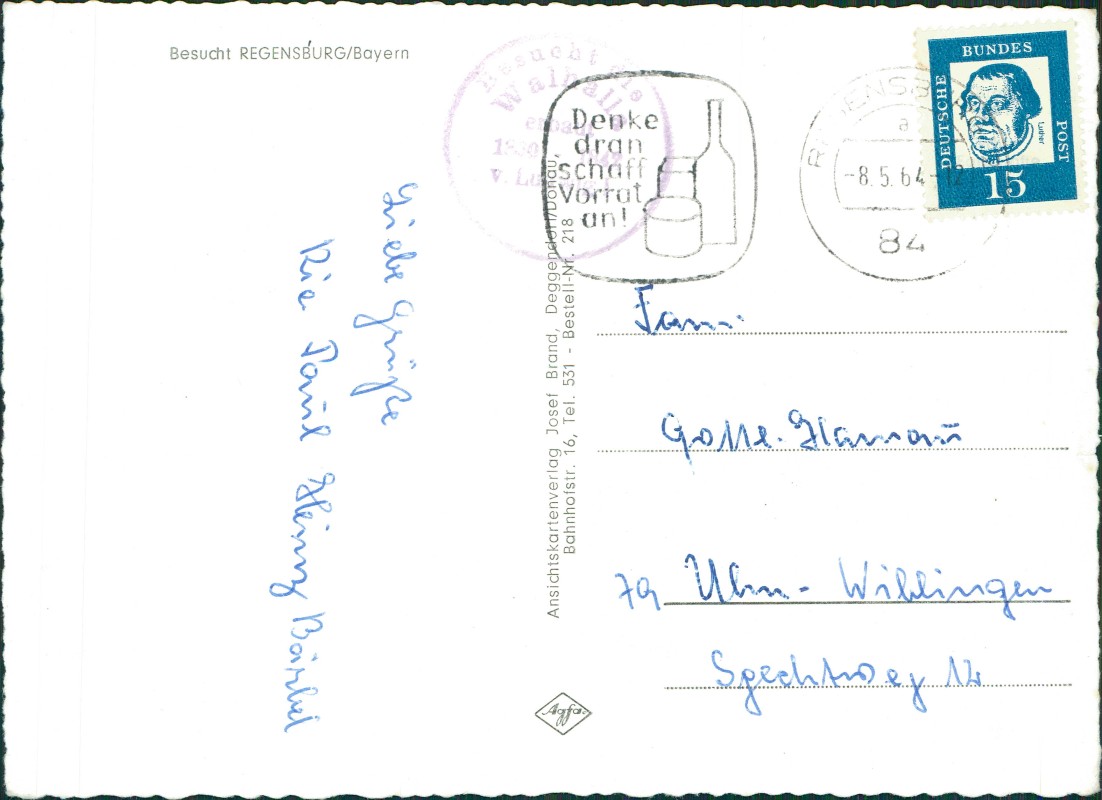 Besucht REGENSBURG/Bayern
Besucht die
Walhalla
erbaut
v. L
Denke
dran
schaff
Vorrat
an!
REGENSBURG
a
-8.5.64-12
84
DEUTSCHE
BUNDES
POST
Luther
15
Liebe Grüße
Ria Paul Heinz Bärbel
Ansichtskartenverlag Josef Brand, Deggendorf/Donau,
Bahnhofstr. 16, Tel. 531 - Bestell-Nr. 218
Fam.
79 Ulm-Wiblingen
Spechtweg 12
Agfa